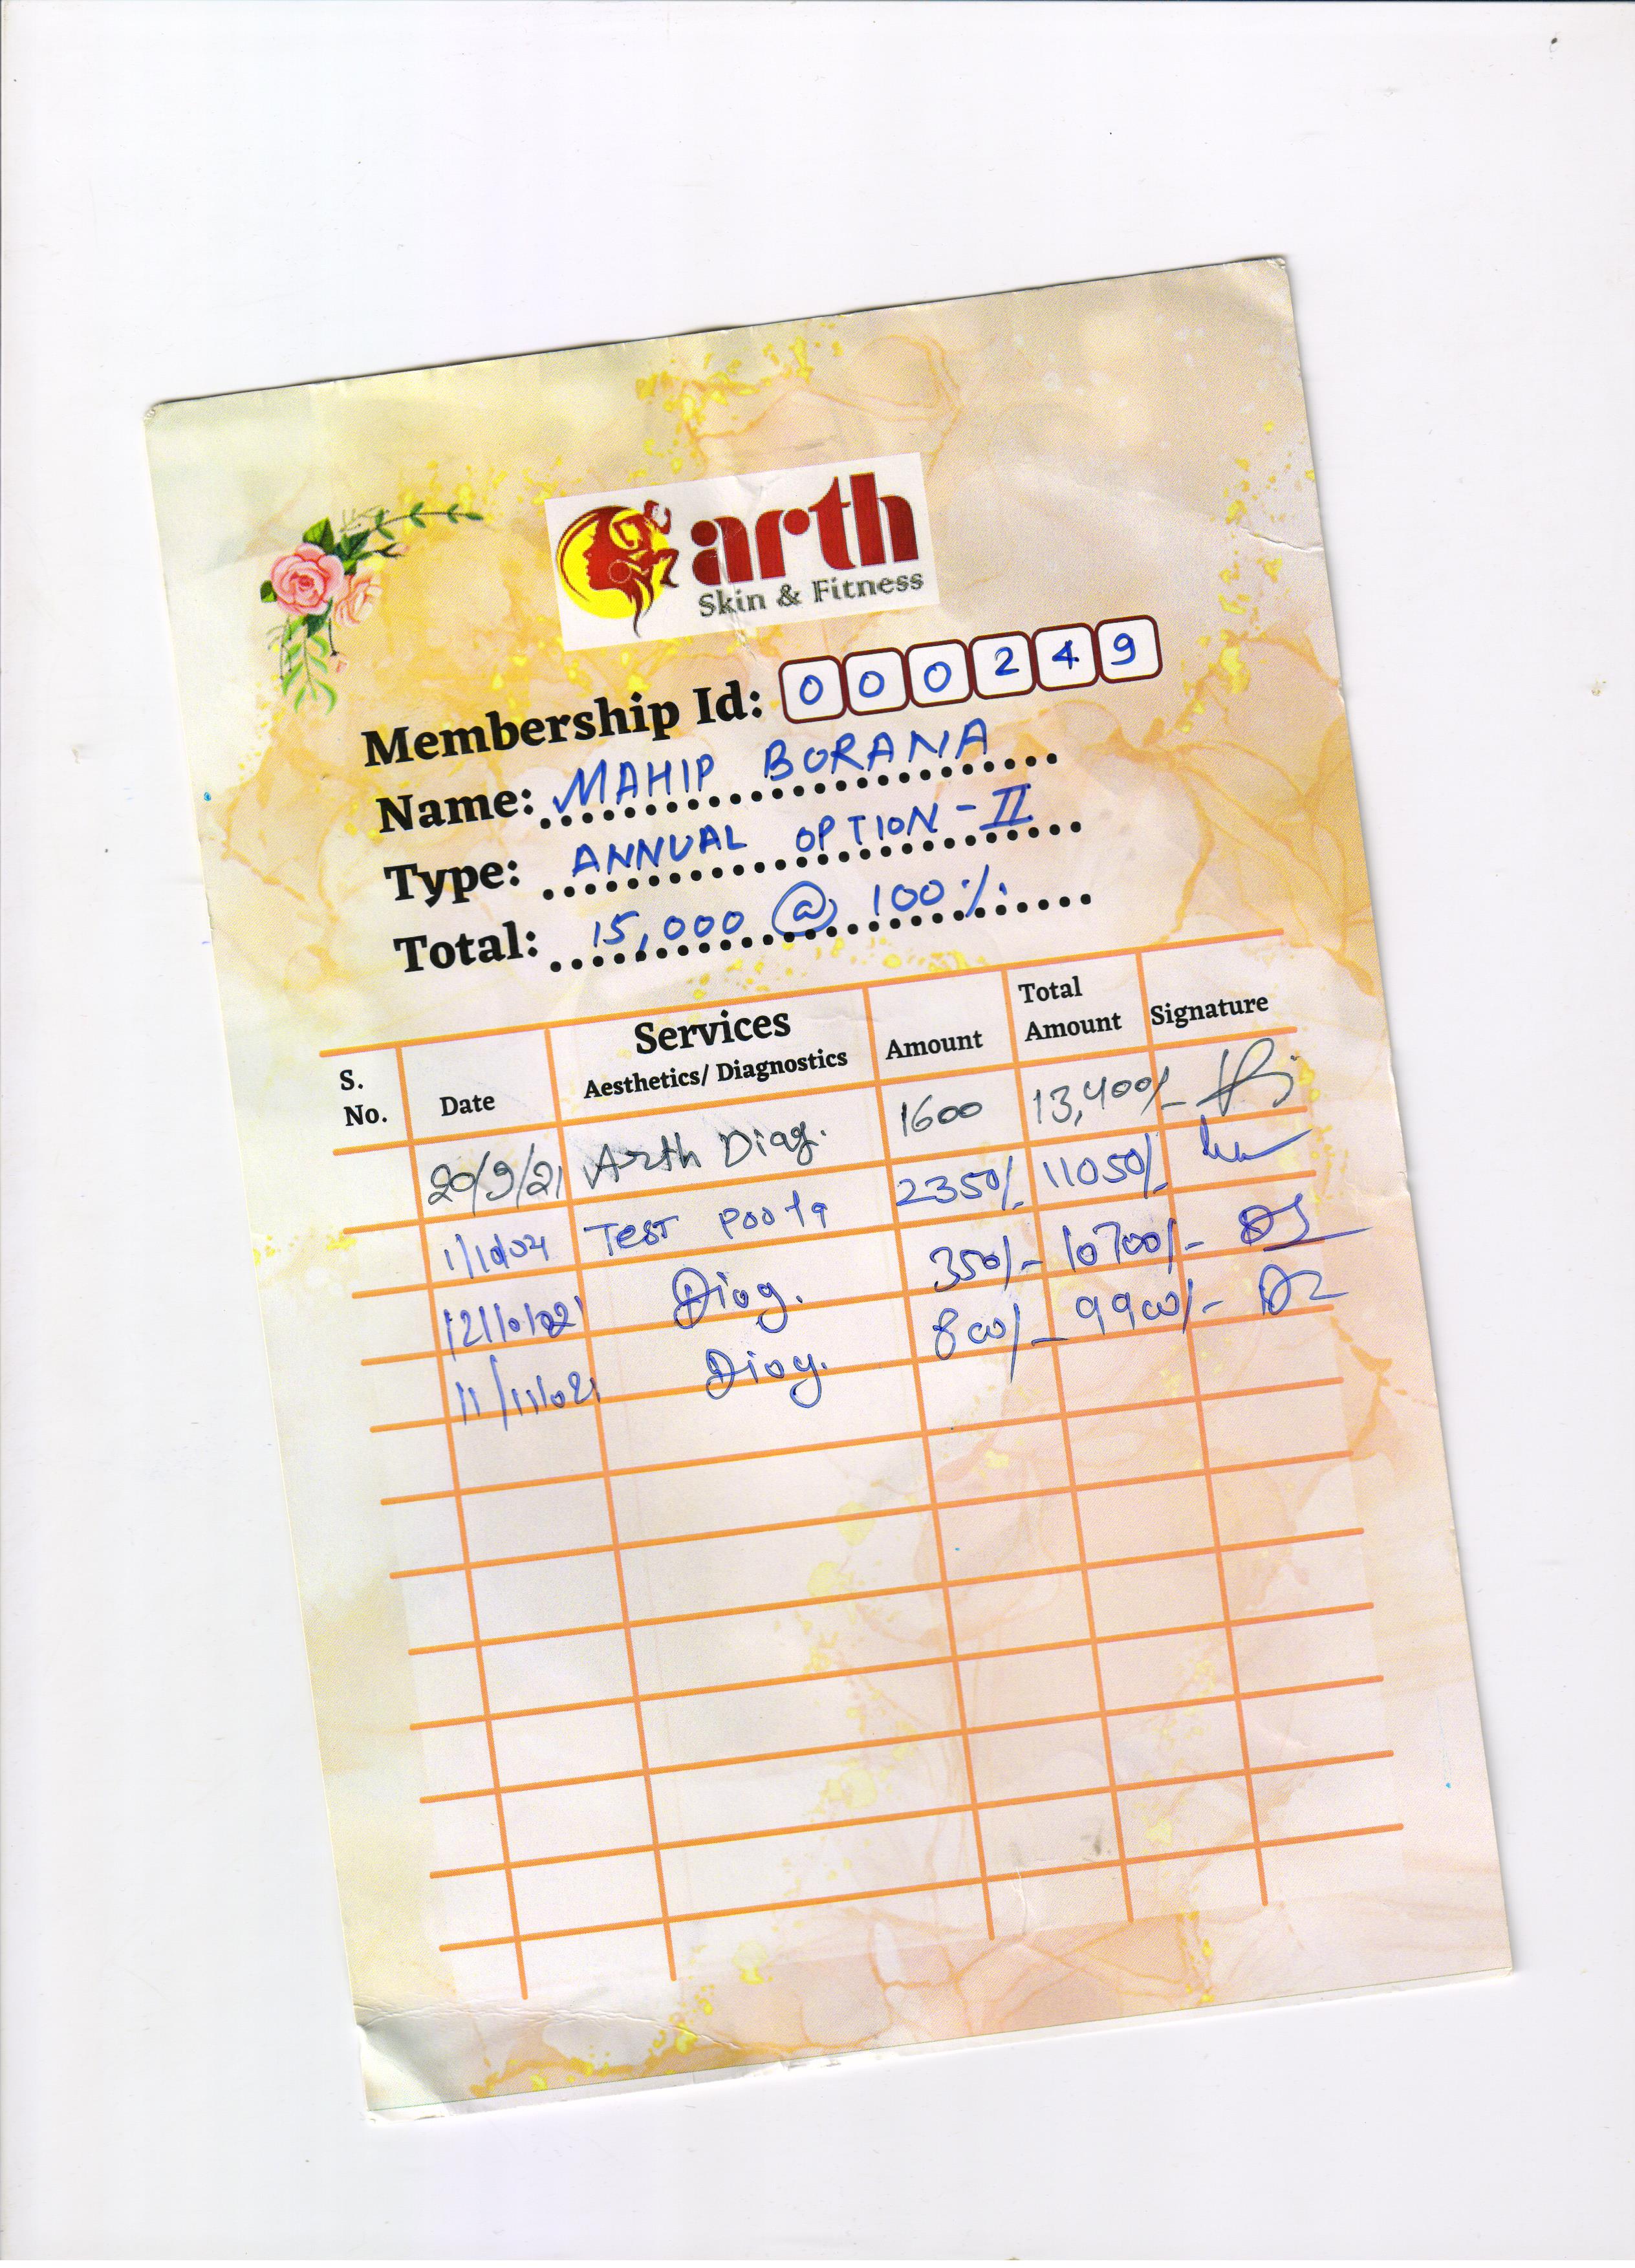 arth
Skin & Fitness
Membership Id: 000249
Name: MAHIP BORANA
Type: ANNUAL OPTION - II
Total: 15,000 @ 100%
S. No. Date Services Aesthetics/ Diagnostics Amount Total Amount Signature
20/9/21 Arth Diag. 1600 13,400/-
1/10/21 Test 2350/- 11050/-
12/10/021 Diag. 350/- 10700/-
11/11/021 Diag. 800/- 9900/-